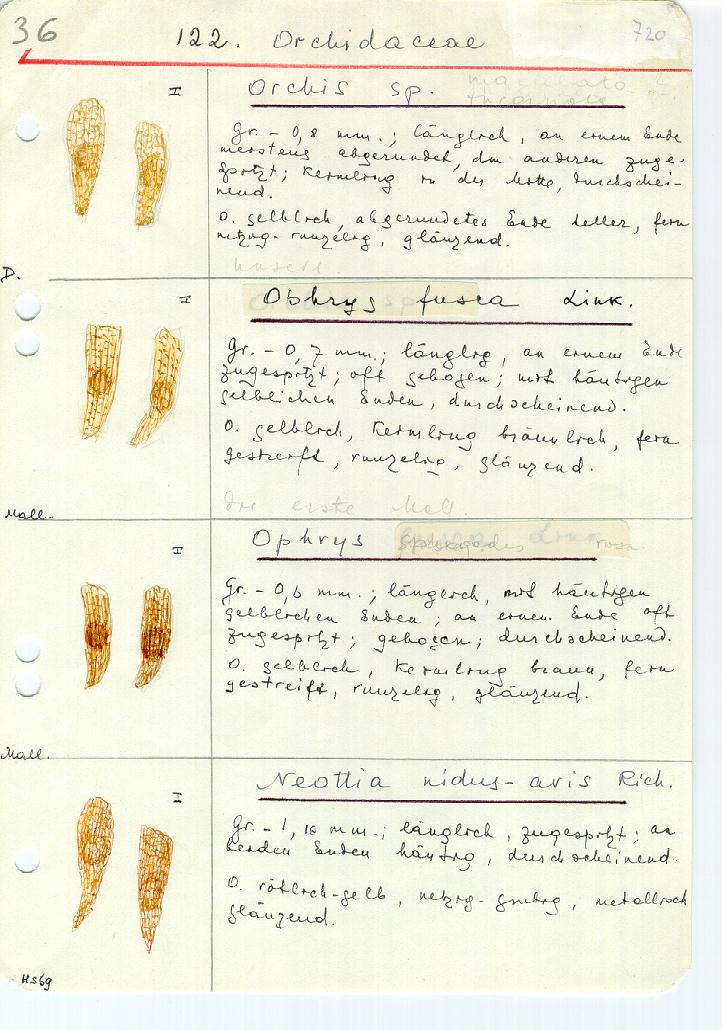 36
122. Orchidaceae
720
Orchis sp.
Gr. - 0,8 mm.; länglich, an einem Ende
meistens abgerundet, dem anderen zuge-
spitzt; Kernling in der Mitte, durchschei-
nend.
O. gelblich, abgerundetes Ende heller, fein
netzig-runzelig, glänzend.
unsere
D.
Ophrys fusca Link.
Gr. - 0,7 mm.; länglig, an einem Ende
zugespitzt; oft gebogen; mit häutigen
gelblichen Enden, durchscheinend.
O. gelblich, Kernling bräunlich, fein
gestreift, runzelig, glänzend.
Die erste Mall.
Mall.
Ophrys sphegodes
Gr. - 0,6 mm.; länglich, mit häutigen
gelblichen Enden; an einem Ende oft
zugespitzt; gebogen; durchscheinend.
O. gelblich, Kernling braun, fein
gestreift, runzelig, glänzend.
Mall.
Neottia nidus-avis Rich.
Gr. - 1,10 mm.; länglich, zugespitzt; an
beiden Enden häutig, durchscheinend.
O. rötlich-gelb, netzig-grubig, metallisch
glänzend.
HS69